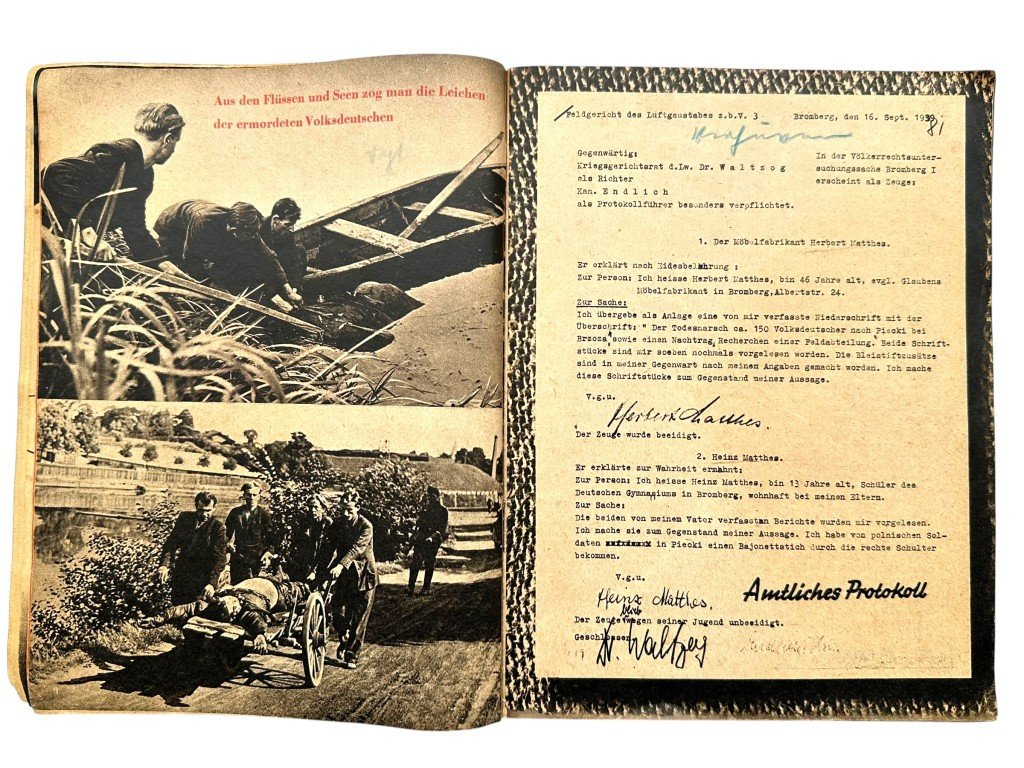 Aus den Flüssen und Seen zog man die Leichen
der ermordeten Volksdeutschen
Feldgericht des Luftgaustabes z.b.V. 3 Bromberg, den 16. Sept. 1939
81
Gegenwärtig:
Kriegsgerichtsrat d.Lw. Dr. Waltzog
als Richter
Kan. Endlich
als Protokollführer besonders verpflichtet.
In der Völkerrechtsunter-
suchungssache Bromberg I
erscheint als Zeuge:
1. Der Möbelfabrikant Herbert Matthes.
Er erklärt nach Eidesbelehrung :
Zur Person: Ich heisse Herbert Matthes, bin 46 Jahre alt, evgl. Glaubens
Möbelfabrikant in Bromberg,Albertstr. 24.
Zur Sache:
Ich übergebe als Anlage eine von mir verfasste Niederschrift mit der
Überschrift: " Der Todesmarsch ca. 150 Volksdeutscher nach Piecki bei
Brzoza" sowie einen Nachtrag, Recherchen einer Feldabteilung. Beide Schrift-
stücke sind mir soeben nochmals vorgelesen worden. Die Bleistiftzusätze
sind in meiner Gegenwart nach meinen Angaben gemacht worden. Ich mache
diese Schriftstücke zum Gegenstand meiner Aussage.
V.g.u.
Herbert Matthes.
Der Zeuge wurde beeidigt.
2. Heinz Matthes.
Er erklärte zur Wahrheit ermahnt:
Zur Person: Ich heisse Heinz Matthes, bin 13 Jahre alt, Schüler des
Deutschen Gymnasiums in Bromberg, wohnhaft bei meinen Eltern.
Zur Sache:
Die beiden von meinem Vater verfassten Berichte wurden mir vorgelesen.
Ich mache sie zum Gegenstand meiner Aussage. Ich habe von polnischen Sol-
daten in Piecki einen Bajonettstich durch die rechte Schulter
bekommen.
V.g.u.
Heinz Matthes.
Amtliches Protokoll
blieb
Der Zeuge wegen seiner Jugend unbeeidigt.
Geschlossen
Dr. Waltzog